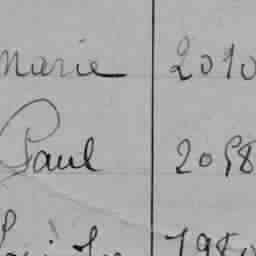 Marie 2010
Paul 2058
1980